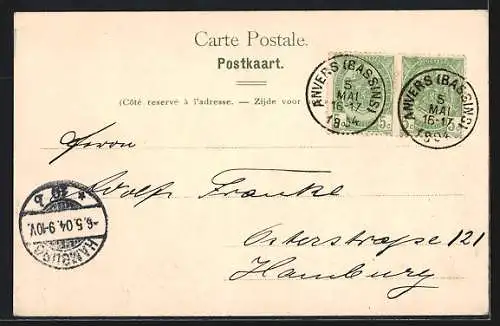 Carte Postale.
Postkaart.
(Côté reservé à l'adresse. — Zijde voor
ANVERS (BASSINS)
5
MAI
16-17
1904
ANVERS (BASSINS)
5
MAI
16-17
1904
5c
5c
Herrn
Wolf Franke
Osterstrasse 121
Hamburg
HAMBURG
-6.5.04.9-10V.